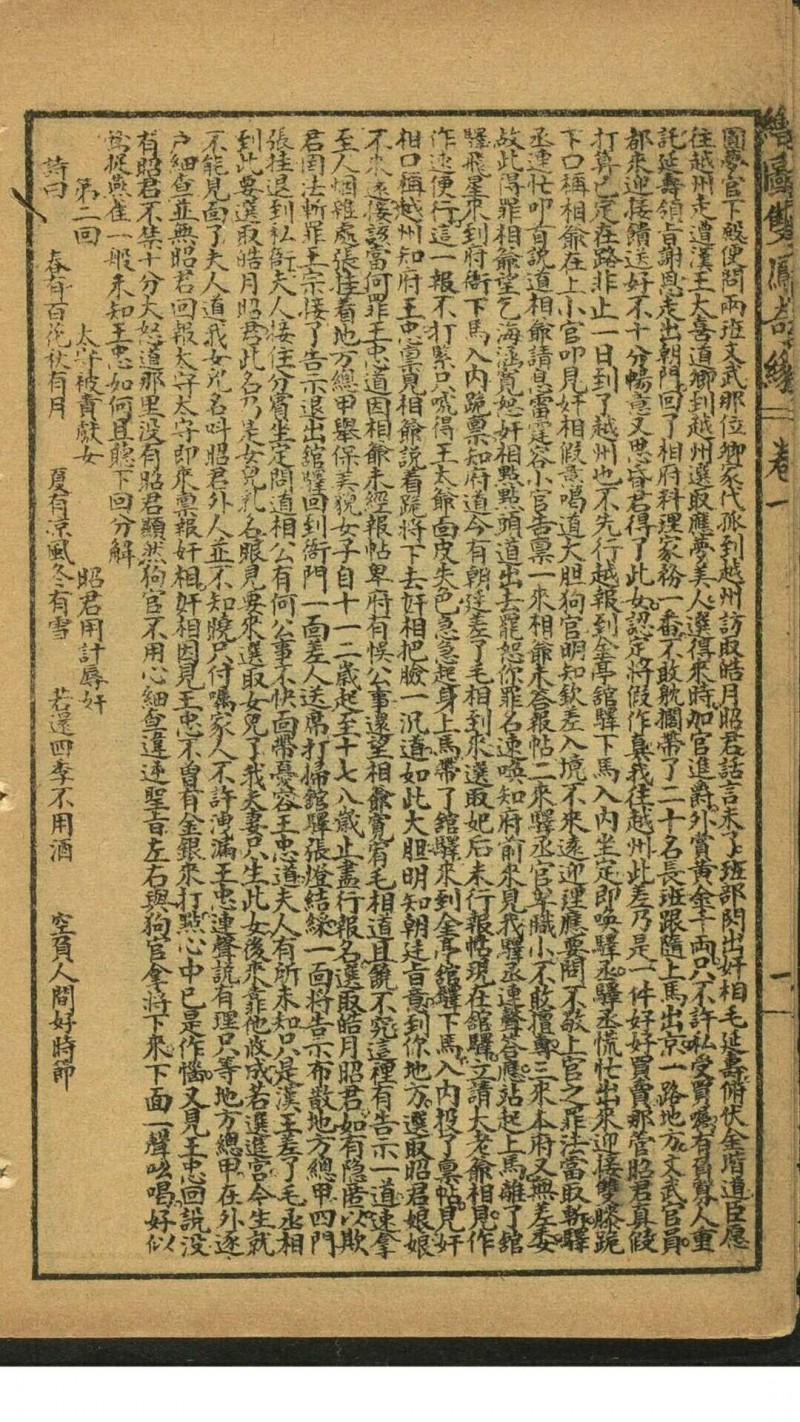 繪圖雙鳳奇緣 卷一 一
圓夢官下殿便問兩班文武那位卿家代孤到越州訪取皓月昭君話言未了班部閃出奸相毛延壽俯伏金階道臣應
往越州走遭漢王大喜道卿到越州選取應夢美人選得來時加官進爵外賞黃金千兩只不許私受買囑有負寡人重
託延壽領旨謝恩走出朝門回了相府料理家務一番不敢躭擱帶了二十名長班跟隨上馬出京一路地方文武官員
都來迎接餽送好不十分暢意又思昏君得了此女認定將假作真我往越州此差乃是一件好好買賣那管昭君真假
打算已定在路非止一日到了越州也不先行越報到金亭舘驛下馬入內坐定即喚驛丞驛丞慌忙出來迎接雙膝跪
下口稱相爺在上小官叩見奸相假意喝道大胆狗官明知欽差入境不來遠迎理應要問不敬上官之罪法當取斬驛
丞連忙叩首說道相爺請息雷霆容小官告禀一來相爺未荅報帖二來驛丞官卑職小不敢擅專三來本府又無差委
故此得罪相爺望乞海涵寬恕奸相點點頭道出去罷恕你罪名速喚知府前來見我驛丞連聲答應站起上馬離了舘
驛飛星來到府衙下馬入內跪禀知府道今有朝廷差了毛相到來選取妃后未行報帖現在舘驛立請太老爺相見作
作速便行這一報不打緊只唬得王太爺面皮失色急急起身上馬帶了舘驛來到金亭舘驛下馬入內投了禀帖見奸
相口稱越州知府王忠禀見相爺說着跪將下去奸相把臉一沉道如此大胆明知朝廷旨意到你地方選取昭君娘娘
不來遠接該當何罪王忠道因相爺未經報帖卑府有悞公事還望相爺寬宥毛相道且饒不究這裡有告示一道速拿
至人烟雜處張挂着地方總甲舉保美貌女子自十一二歲起至十七八歲止盡行報名選取皓月昭君如有隐匿以欺
君罔法斬罪王宗接了告示退出舘驛回到衙門一面差人送席打掃舘驛張燈結綵一面將告示布散地方總甲四門
張挂退到私衙夫人接住分賓坐定問道相公有何公事不快面帶憂容王忠道夫人有所未知只是漢王差了毛丞相
到此要選取皓月昭君此名乃是女兒乳名眼見要來選取女兒了我夫妻只生此女後來靠他收成若選進宮今生就
不能見面了夫人道我女兒名叫昭君外人並不知曉只付囑家人不許洩漏王忠連聲說有理只等地方總甲在外逐
戶細查並無昭君回報太守太守即來禀報奸相奸相因見王忠不曾有金銀來打點心中已是作惱又見王忠回說沒
有昭君不禁十分大怒道那里沒有昭君顯然狗官不用心細查違逆聖旨左右與狗官拿將下來下面一聲吆喝好似
鷹捉燕雀一般未知王忠如何且聽下回分解
第二回 太守被責獻女 昭君用計辱奸
詩曰 春有百花秋有月 夏有凉風冬有雪 若還四季不用酒 空負人間好時節